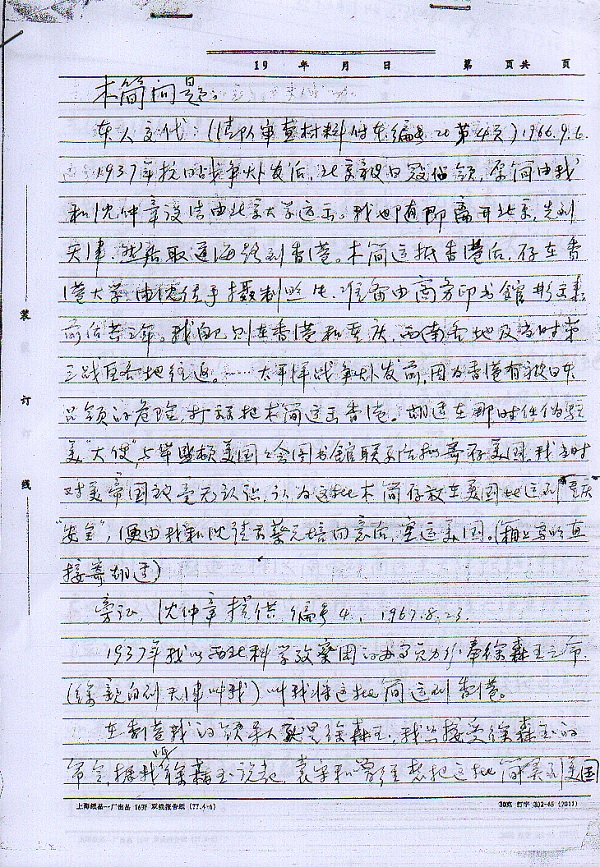 19 年 月 日 第 页共 页
木简问题：
本人交代：(清队审查材料 件东编号 20 第4页) 1966.9.6.
1937年抗日战争爆发后，北京被日寇占领，居简由我
和沈仲章设法由北京大学运出。我也随即离开北京，先到
天津，然后取道海路到香港。木简运抵香港后，存在香
港大学，由沈经手摄制照片，准备由商务印书馆
前后共三年。我自己则在香港和重庆，西南各地及当时第
三战区各地往返。……太平洋战争爆发前，因为香港有被日本
占领的危险，打算把木简运出香港。胡适在那时任伪驻
美"大使"，与华盛顿美国国会图书馆联系后拟寄存美国，我当时
对美帝国主义毫无认识，认为这批木简存放在美国比运到重庆
"安全"，便由我和沈请示蔡元培同意后，运美国。(箱上写的直
接寄胡适)
旁证，沈仲章提供 编号4， 1967.8.23.
1937年我以西北科学考察团 奉徐森玉之命
(徐亲自到天津叫我) 叫我将这批简运到香港。
在香港我的领导人就是徐森玉，我只接受徐森玉的
命令，据 徐森玉说起，袁守和曾经想把这批简弄到美国
装
订
线
上海纸品一厂出品 16开 双线报告纸 (77.4-6)